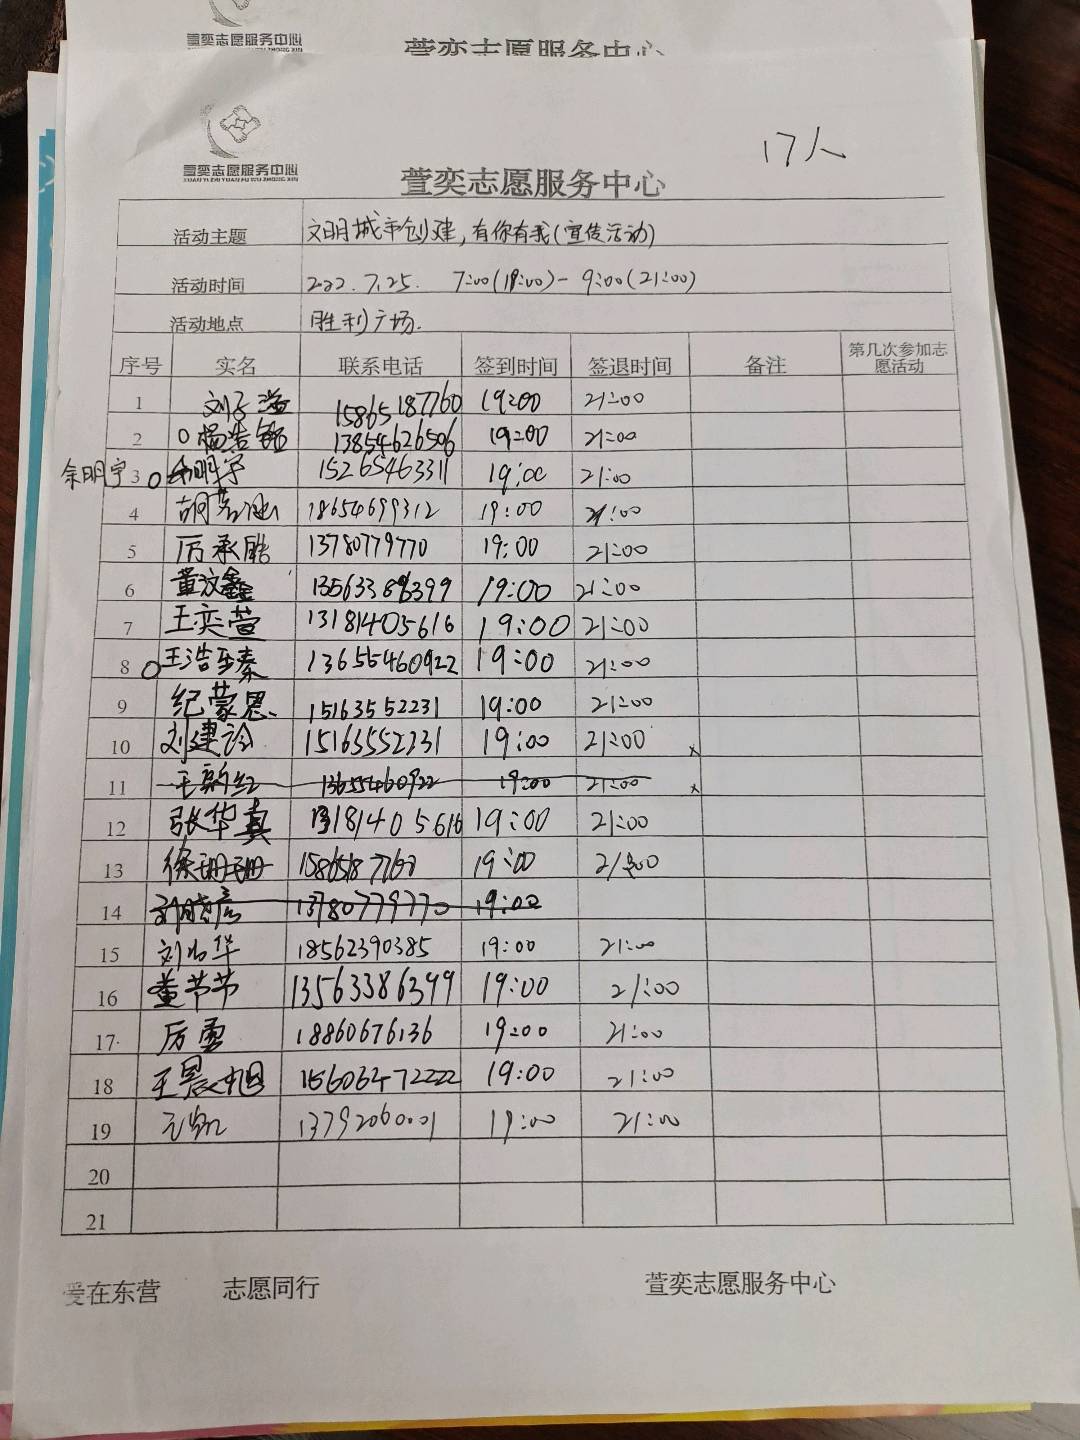 萱奕志愿服务中心
萱奕志愿服务中心
17人
萱奕志愿服务中心
XUAN YI ZHI YUAN FU WU ZHONG XIN
萱奕志愿服务中心
活动主题 文明城市创建,有你有我(宣传活动)
活动时间 2022.7.25. 7:00(19:00)-9:00(21:00)
活动地点 胜利广场.
序号 实名 联系电话 签到时间 签退时间 备注 第几次参加志愿活动
1 刘子溢 15865187760 19:00 21:00
2 杨浩 13854626506 19:00 21:00
余明宇 3 余明宇 15265463311 19:00 21:00
4 胡 18654699312 19:00 21:00
5 厉承皓 13780779770 19:00 21:00
6 董汶鑫 13563386399 19:00 21:00
7 王奕萱 13181405616 19:00 21:00
8 王浩 13655460922 19:00 21:00
9 纪蒙恩 15163552231 19:00 21:00
10 刘建 15163552231 19:00 21:00 x
11 王 13655460922 19:00 21:00 x
12 张华真 13181405616 19:00 21:00
13 徐珊珊 15865187760 19:00 21:00
14 13780779770 19:00
15 刘 华 18562390385 19:00 21:00
16 董节节 13563386399 19:00 21:00
17 厉雷 18860676136 19:00 21:00
18 王晨旭 15606472222 19:00 21:00
19 元凯 13792060001 19:00 21:00
20
21
爱在东营 志愿同行 萱奕志愿服务中心